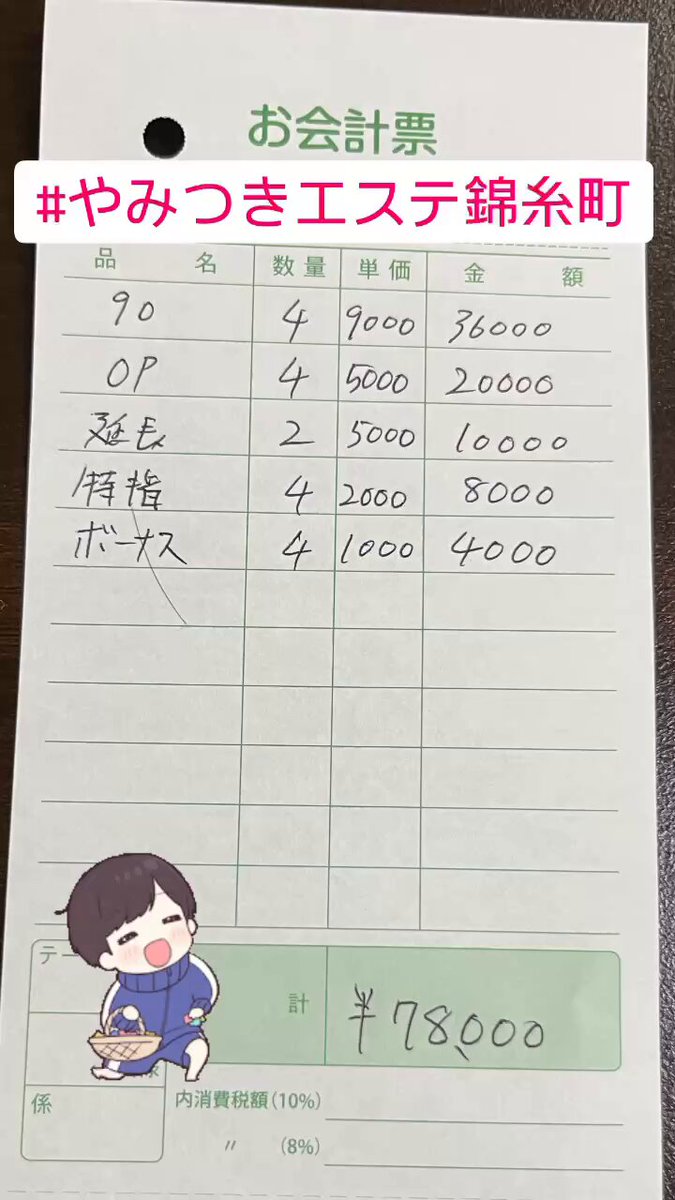 お会計票
#やみつきエステ錦糸町
品 名 数量 単価 金 額
90 4 9000 36000
OP 4 5000 20000
延長 2 5000 10000
特指 4 2000 8000
ボーナス 4 1000 4000
テー
計 ¥78,000
係
内消費税額(10%)
〃 (8%)